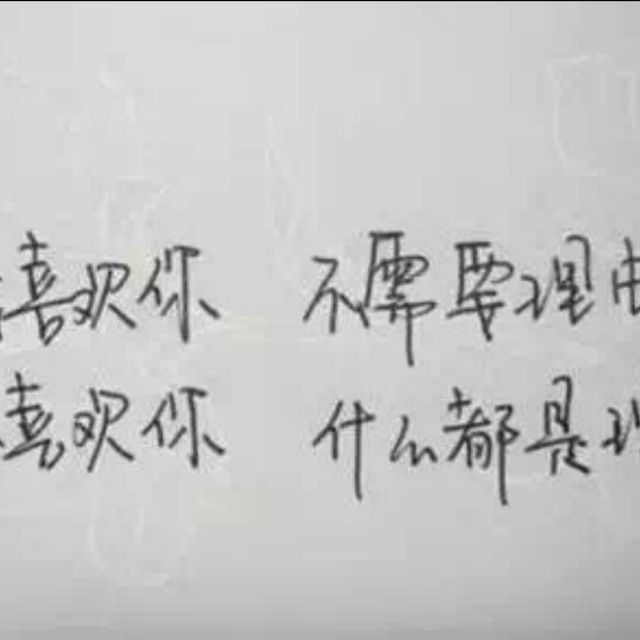 喜欢你 不需要理由
喜欢你 什么都是理